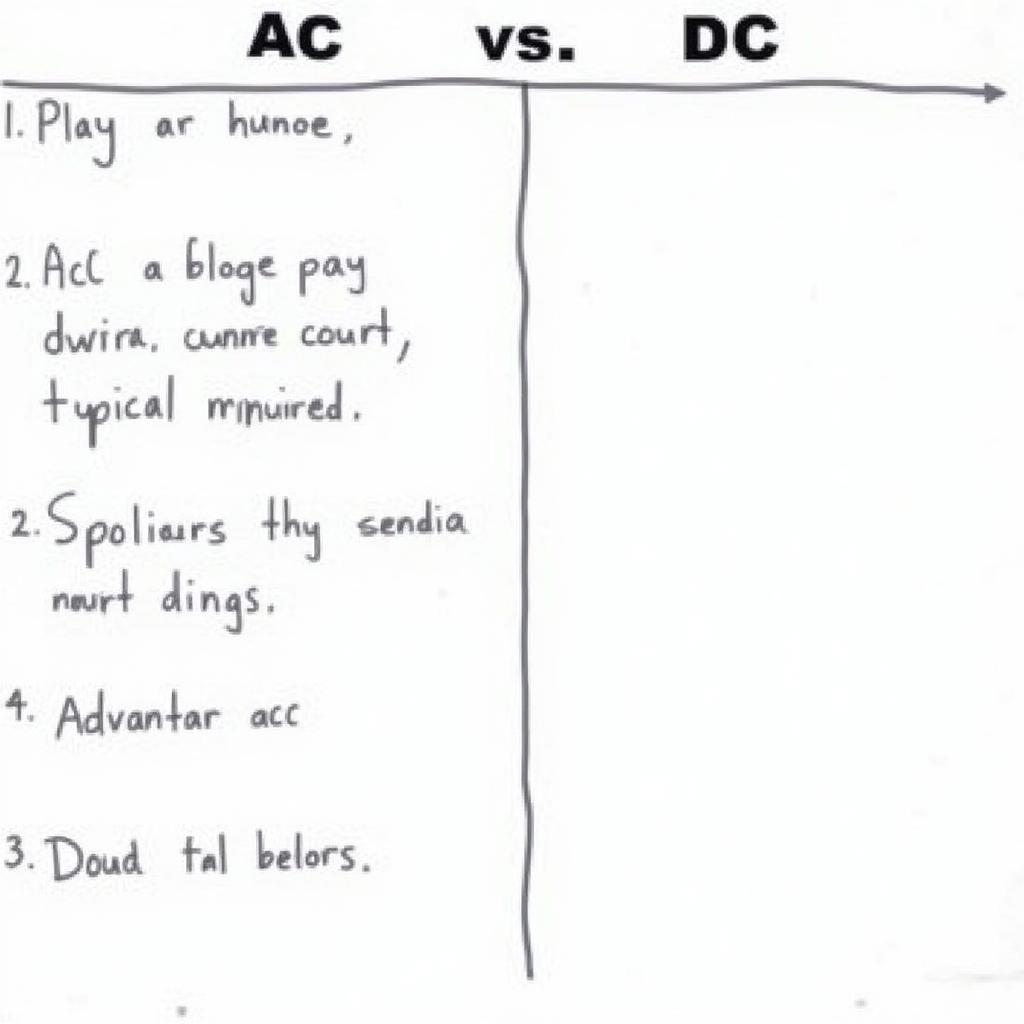 AC vs. DC
1. Play ar hunoe,
2. Acc a bloge pay
dwira. cunre court,
typical mnuired.
2. Spoliaurs thy sendia
nourt dings.
4. Advantar acc
3. Doud tal belors.